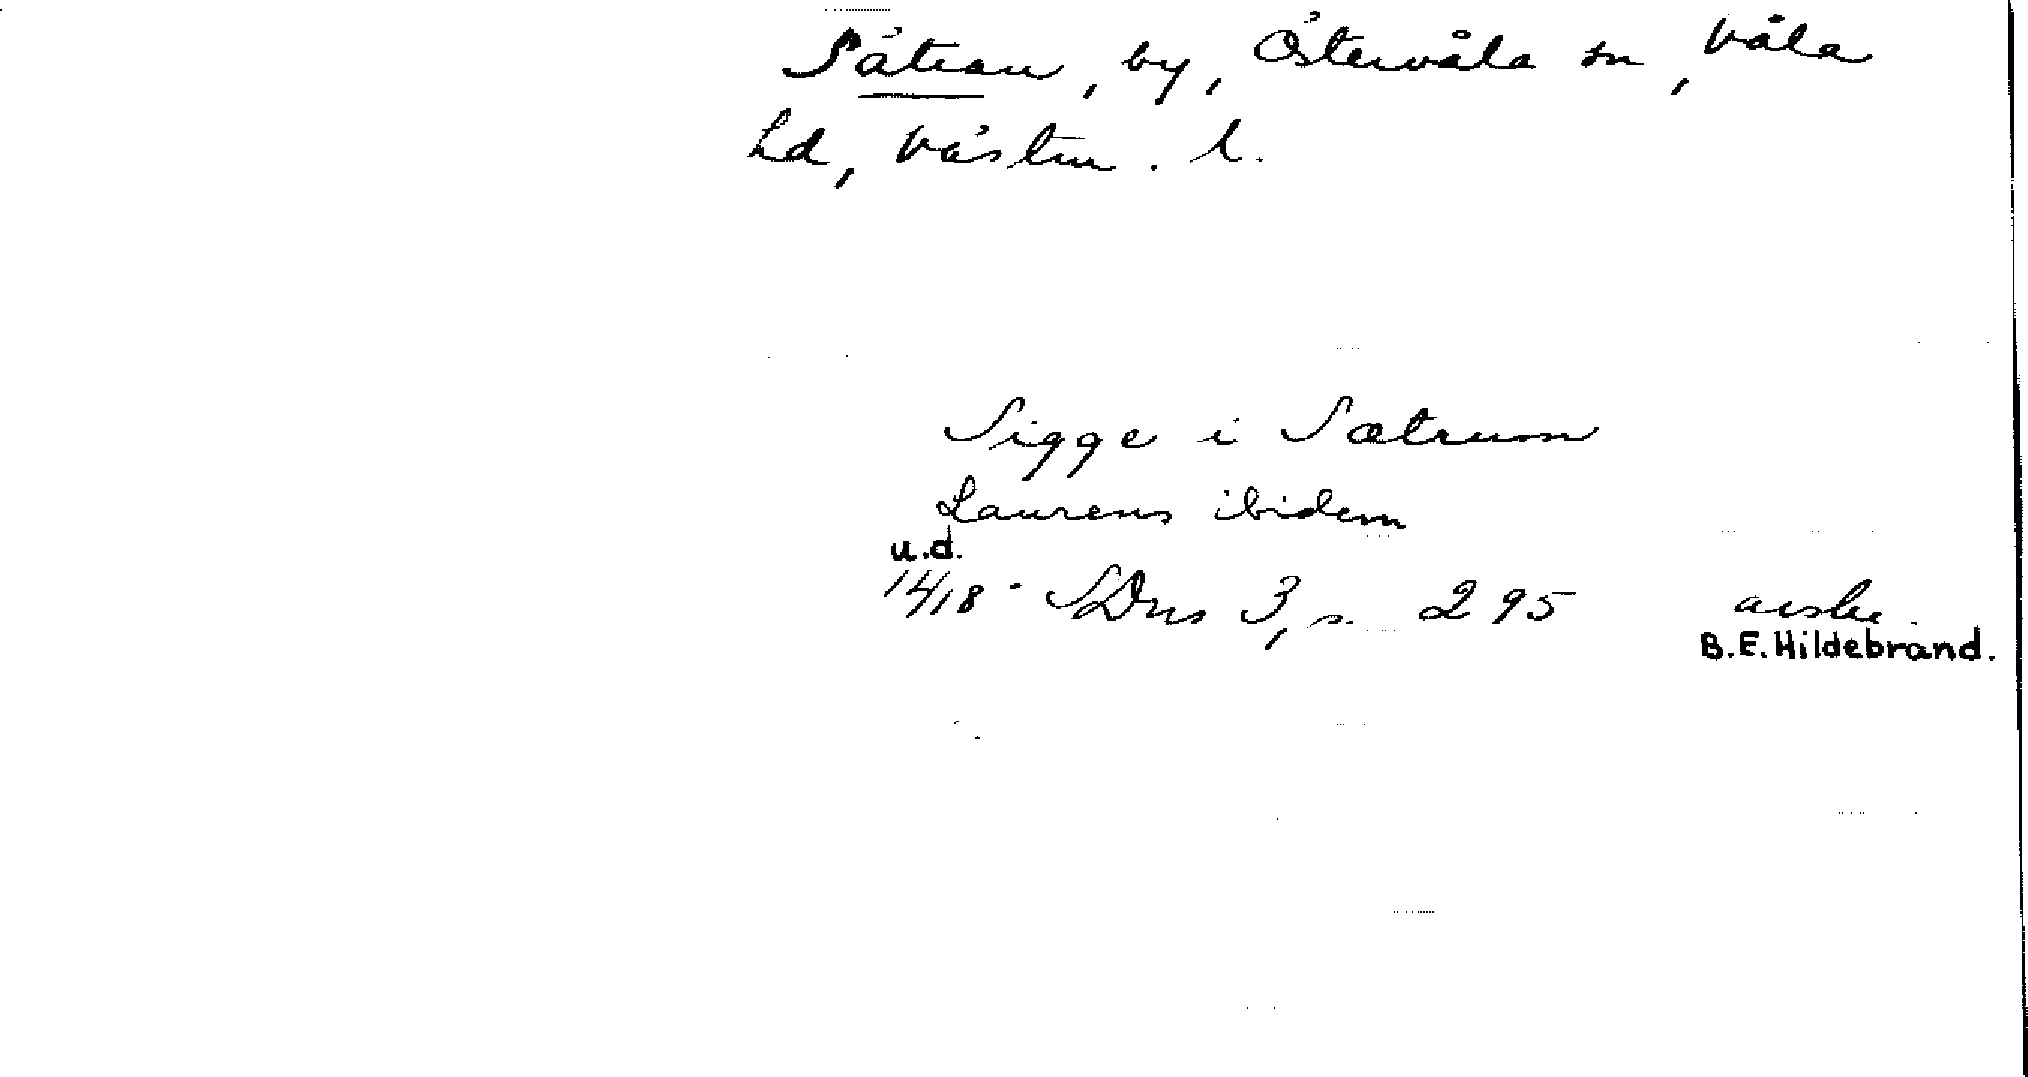 Sätran, by, Östervåla sn, Våla
hd, Västm. l.
Sigge i Sætrum
Laurens ibidem
u.d.
1418 SDns 3, s. 295 avskr.
B.E. Hildebrand.